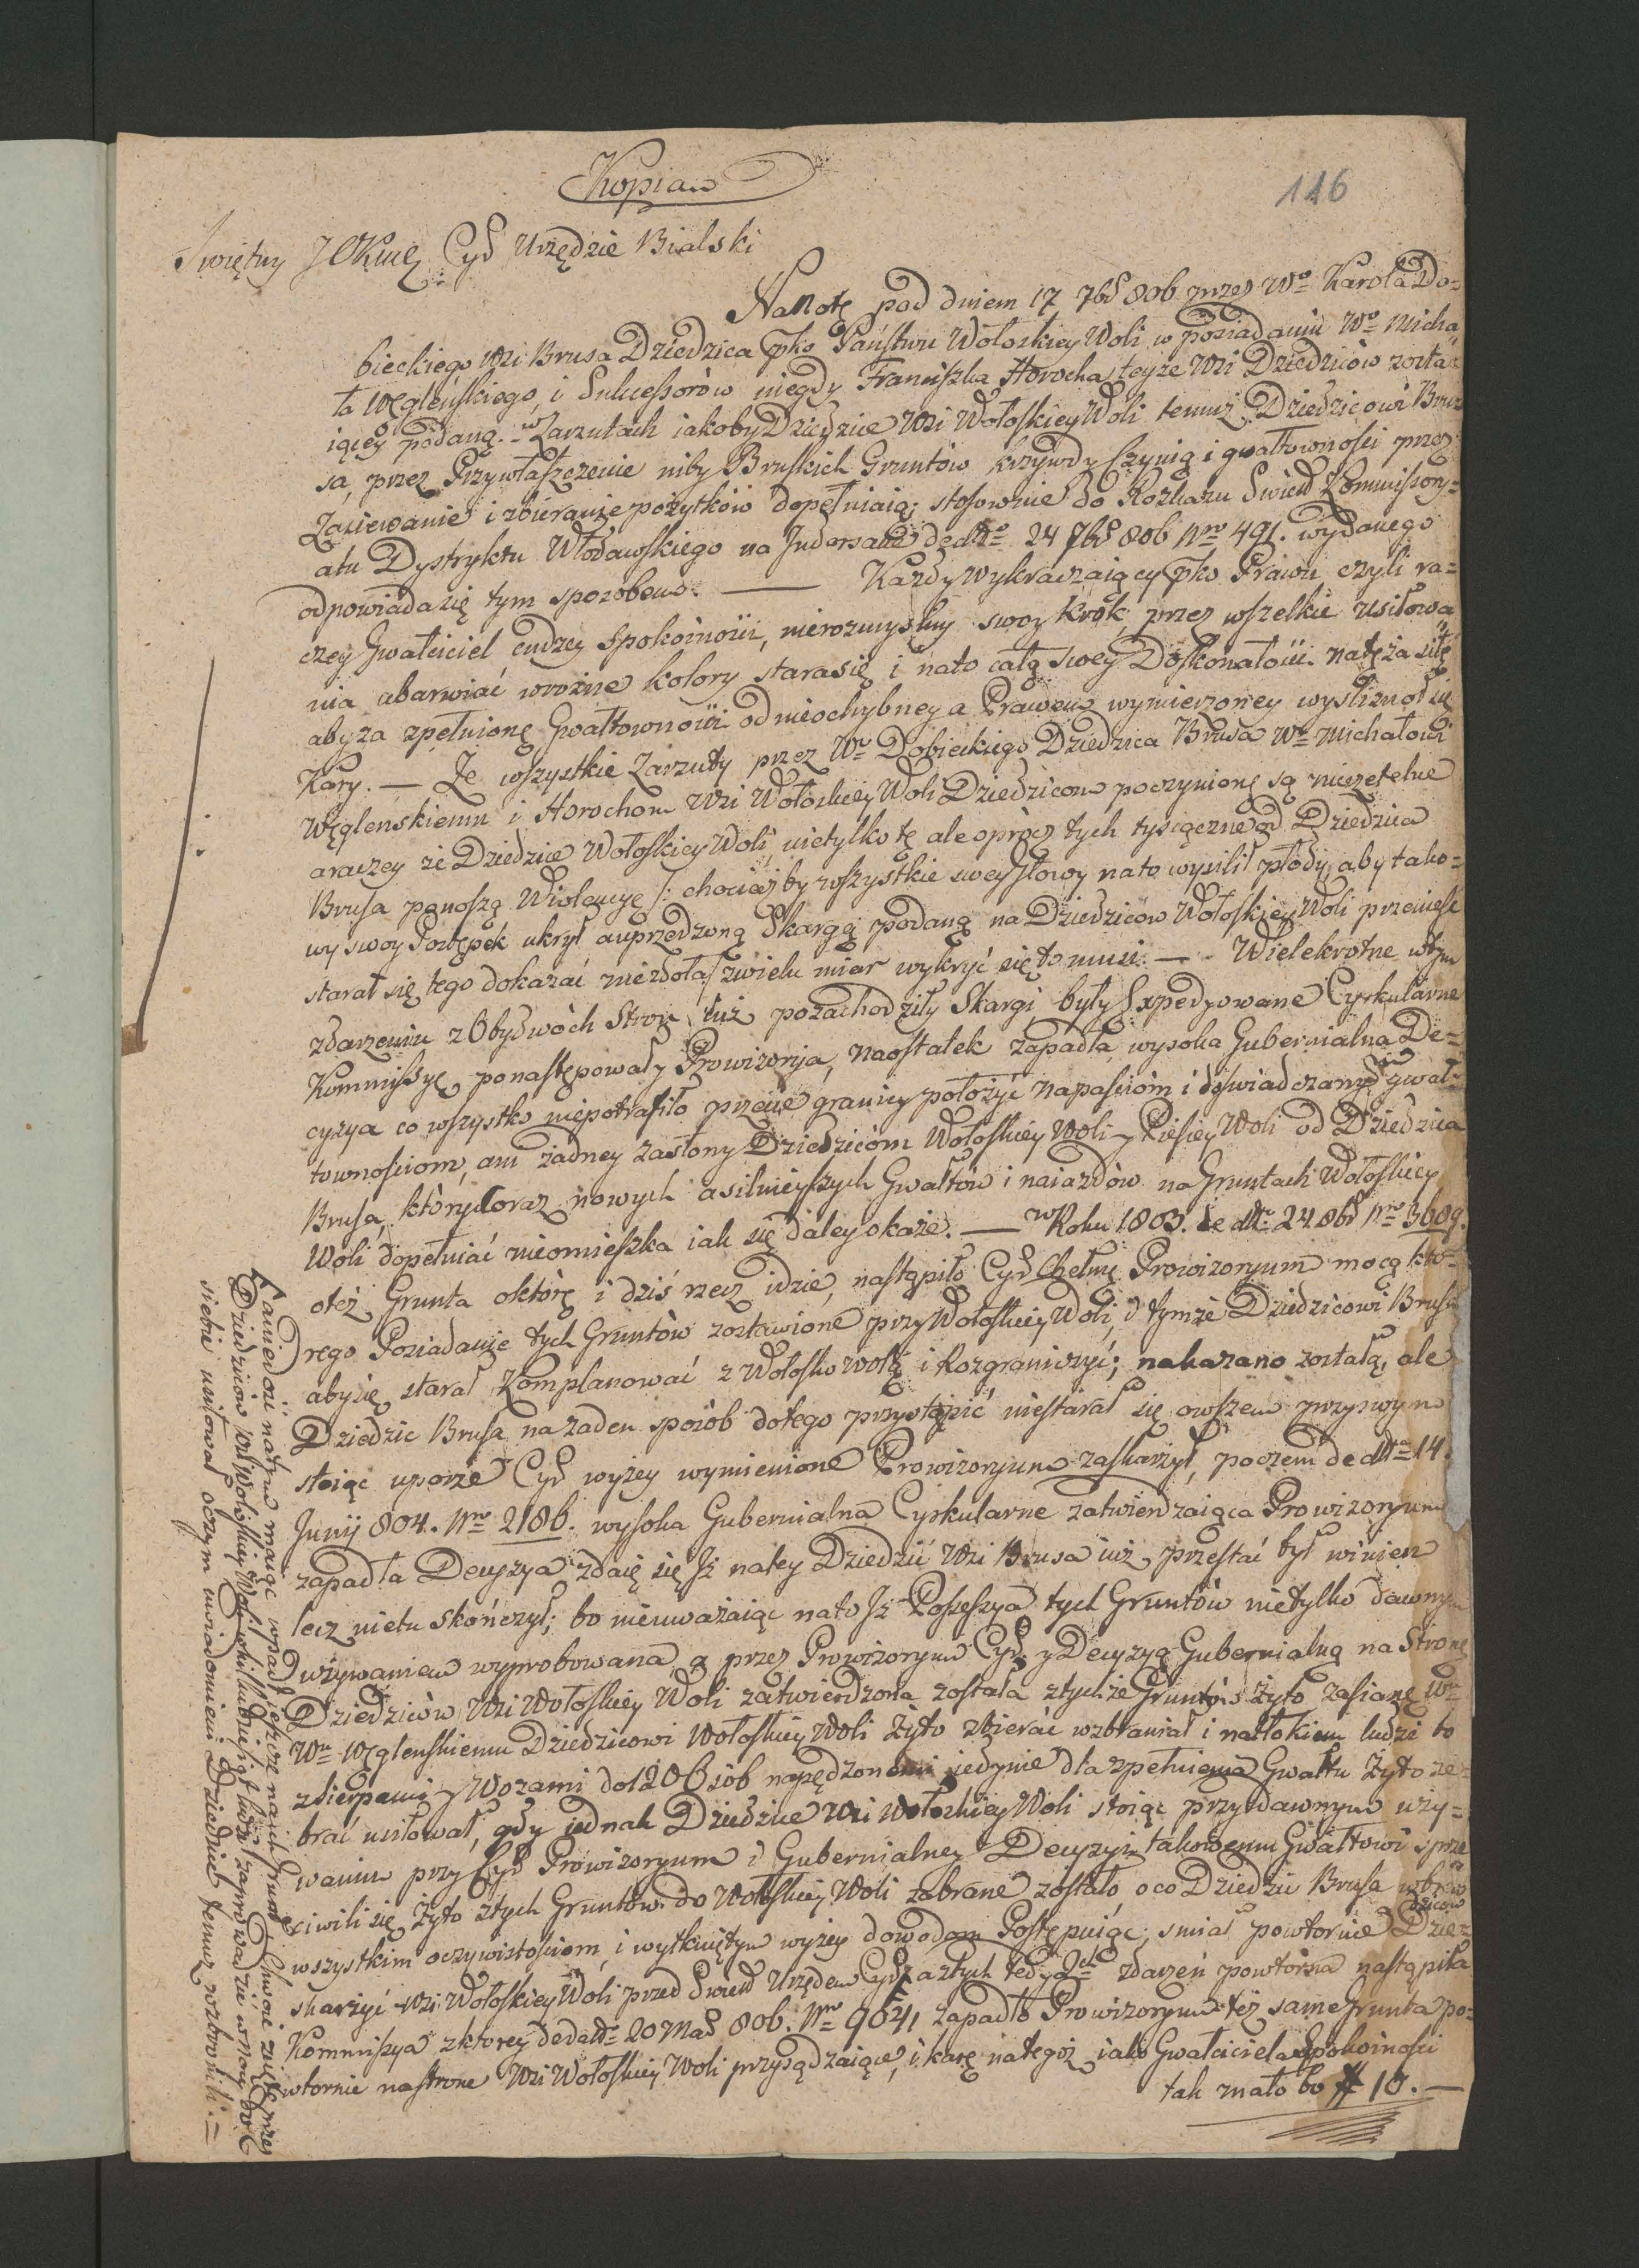 Kopia
116
Swiętny JCKmę Cyd Urzędzie Bialski
Na Notę pod dniem 17 7bṙ 806 przez Wo Karola Do=
bieckiego Wsi Brusa Dziedzica pko Państwu Wołoskiey Woli w posiadaniu Wo Micha
ła Węgleńskiego, i Sukcessorów niegdy Franciszka Horocha teyże Wsi Dziedziców zosta=
iącey podaną. w Zarzutach iakoby Dziedzice Wsi Wołoskiey Woli temuż Dziedzicowi Bru=
sa, przez Przywłaszczenie niby Bruskich Gruntów krzywdy czynią i gwałtowności przez
Zasiewanie i zbieranie pożytków dopełniaią; stosownie do Rozkazu Swieto Kommissory=
atu Dystryktu Włodawskiego na Indorsacie de dtto 24 7bṙ 806 Nro 491. wydanego
odpowiada się tym sposobem. — Każdy wykraczaiący pko Prawu czyli ra=
czey Gwałciciel cudzey spokoiności, nierozmyslny swoy krok, przez wszelkie usiłowa
nia abarwiać w rożne kolory stara się i na to całą swey Doskonałości natęża siłę
aby za spełnionę Gwałtowności od nieochybney a Prawem wymierzoney wyslizneł się
Kary. — Ze wszystkie Zarzuty przez Wo Dobieckiego Dziedzica Brusa Wu Michałowi
Węglenskiemu i Horochom Wsi Wołoskiey Woli Dziedzicom poczynionę są nierzetelne
a raczey że Dziedzice Wołoskiey Woli nietylko tę ale oprócz tych tysiączne od Dziedzica
Brusa ponoszą Wiolencye /: chociażby wszystkie swey głowy na to wysilił płody, aby tako=
wy swoy Postępek ukrył a uprzedzoną Skargą podaną na Dziedziców Wołoskiey Woli przeniesć
starał się tego dokazać niezdoła :/ z wielu miar wykryć się to musi. — Wielekrotne w tym
zdarzeniu z Obydwoch Stron iuż pozachodziły Skargi, były Expedyowane Cyrkularne
Kommissye, ponastępowały Prowizorya, naostatek zapadła wysoka Gubernialna De=
cyzya co wszystko niepotrafiło przecie granicy położyć napaściom i doświadczanym gwał=
townościom, ani żadney zasłony Dziedzicom Wołoskiey Woli y Piesiey Woli od Dziedzica
Brusa, który coraz nowych a silnieyszych Gwałtów i naiazdów na Gruntach Wołoskiey
Woli dopełniać nieomieszka iak się daley okaże. — w Roku 1803. de dtto 24 8bṙ Nro 3609.
o też Grunta o którę i dziś rzecz idzie, nastąpiło Cyd Chełmę Prowizoryum mocą któ=
rego Posiadanie tych Gruntów zostawione przy Wołoskiey Woli, a tymże Dziedzicowi Brusa
aby się starał Komplanować z Wołosko wolą i Rozgraniczyć; nakazano zostało, ale
Dziedzic Brusa na żaden sposób do tego przystąpić niestarał się owszem przy swym
stoiąc uporze Cyd wyżey wymienione Prowizoryum zaskarżył, poczem de dtto 14.
Junij 804. Nro 2186. wysoka Gubernialna Cyrkularne zatwierdzaiąca Prowizoryum
zapadła Decyzya, zdaię się Iż na tey Dziedzic Wsi Brusa iuż przestać był winien
lecz nietu skończył; bo nieuważaiąc na to Iż Possessya tych Gruntów nietylko dawnym
używaniem wyprobowana, a przez Prowizoryum Cyd y Decyzyą Gubernialną na Stronę
Dziedziców Wsi Wołoskiey Woli zatwierdzona została z tychże Gruntów Żyto zasiane
Wu Węglenskiemu Dziedzicowi Wołoskiey Woli Żyto zbierać wzbraniał i natłokiem ludzi to
z sierpami y Wozami do 120 Osób napędzonemi iedynie dla spełnienia Gwałtu Żyto ze=
brać usiłował, gdy iednak Dziedzice Wsi Wołoskiey Woli stoiąc przy dawnym uży=
waniu przy Cyd Prowizoryum i Gubernialney Decyzyi takowemu Gwałtowi sprze
ciwili się Żyto z tych Gruntów do Wołoskiey Woli zabrane zostało, o co Dziedzic Brusa wbrew
wszystkim oczywistościom, i wytkniętym wyżey dowodom Postępuiąc, smiał powtornie Dzie=
dziców
skarżyć Wsi Wołoskiey Woli przed Swieto Urzędem Cyd, a z tych tedy zdarzeń powtórna nastąpiła
Kommissya z ktorey de datto 20 Mad 806. Nro 9641 zapadło Prowizoryum też same Grunta po=
wtornie na strone Wsi Wołoskiey Woli przysądzaiące, i karę na tegoż iako Gwałciciela Spokoiności
tak mało bo # 10. —